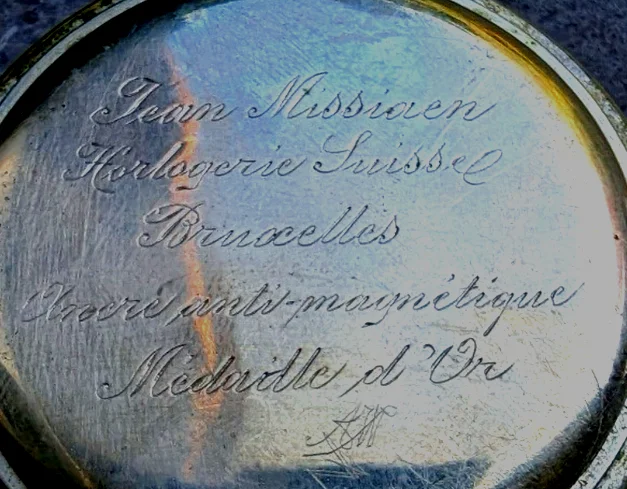 Jean Missiaen
Horlogerie Suisse
Bruxelles
Ancre anti-magnétique
Médaille d'Or